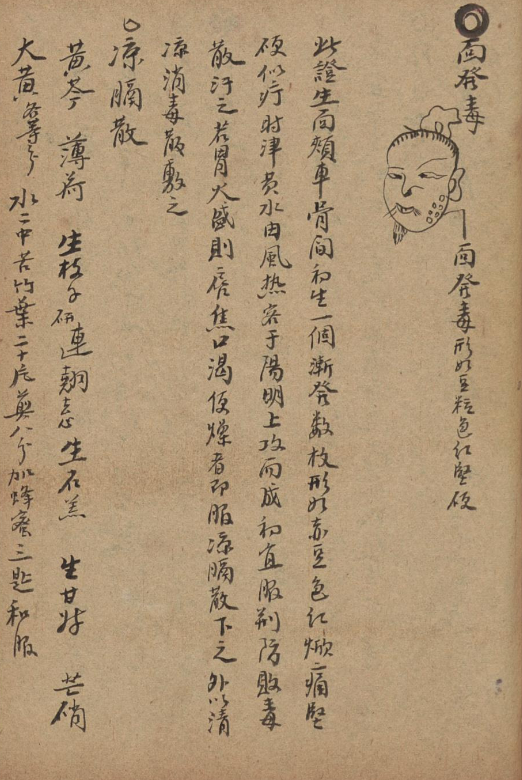 面發毒
面發毒形如豆粒色红堅硬
此證生面頰車骨間初生一個漸發数枚形如赤豆色红焮痛堅
硬似疔时津黄水由風热客于陽明上攻而成初宜服荆防敗毒
散汗之若胃火盛則唇焦口渴便燥者即服凉膈散下之外以清
凉消毒散敷之
凉膈散
黄芩 薄荷 生枝子研 連翹 生石羔 生甘艸 芒硝
大黄各等分 水二中 苦竹葉二十片 煎八分加蜂蜜三匙和服